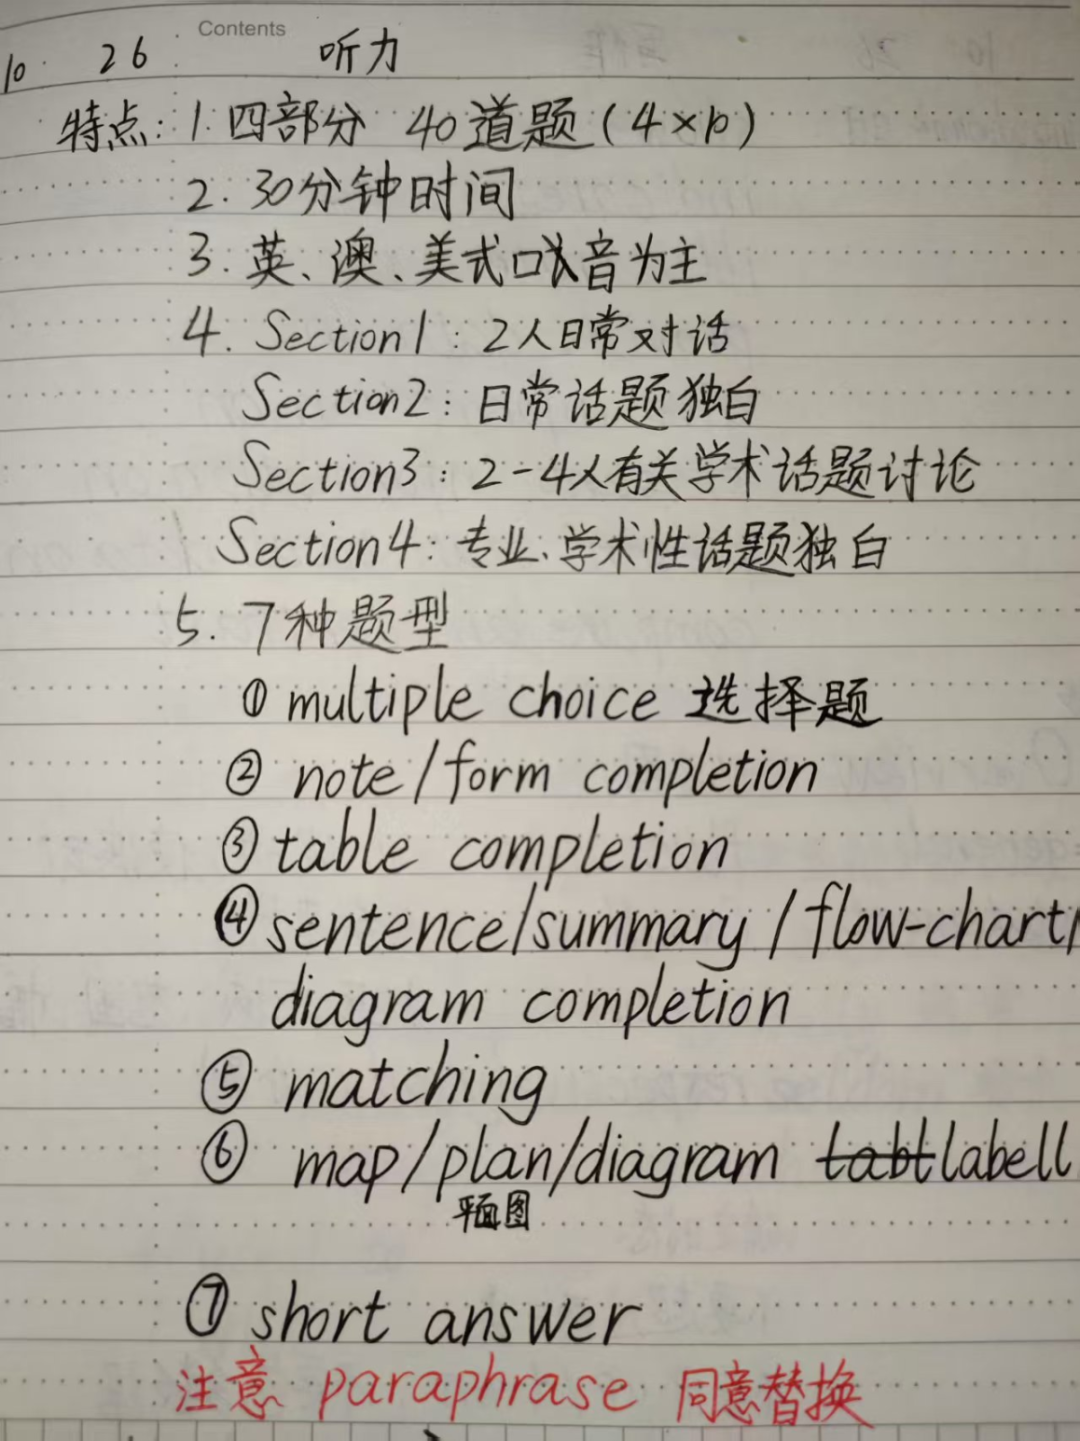 Contents
10 26 听力
特点: 1. 四部分 40道题 (4×10)
2. 30分钟时间
3. 英、澳、美式口音为主
4. Section1: 2人日常对话
Section2: 日常话题独白
Section3: 2-4人有关学术话题讨论
Section4: 专业、学术性话题独白
5. 7种题型
① multiple choice 选择题
② note/form completion
③ table completion
④ sentence/summary/flow-chart/
diagram completion
⑤ matching
⑥ map/plan/diagram labell
平面图
⑦ short answer
注意 paraphrase 同意替换